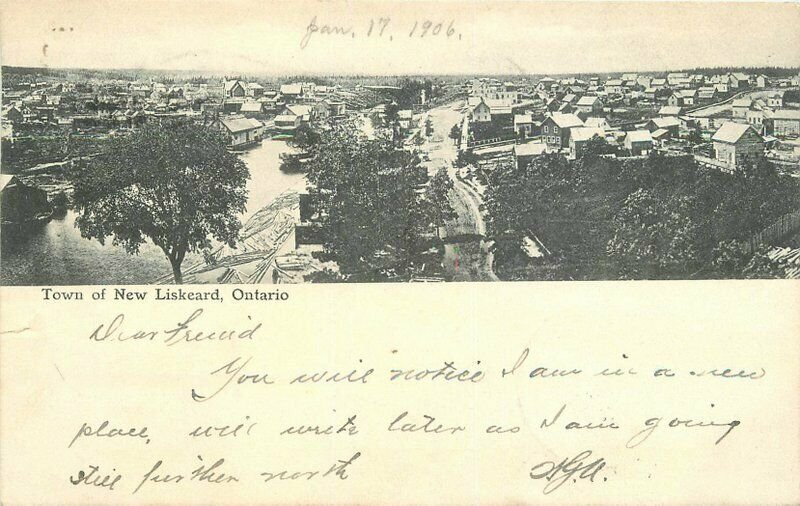 Jan. 17, 1906.
Town of New Liskeard, Ontario
Dear Freind
You will notice I am in a new
place, will write later as I am going
still further north